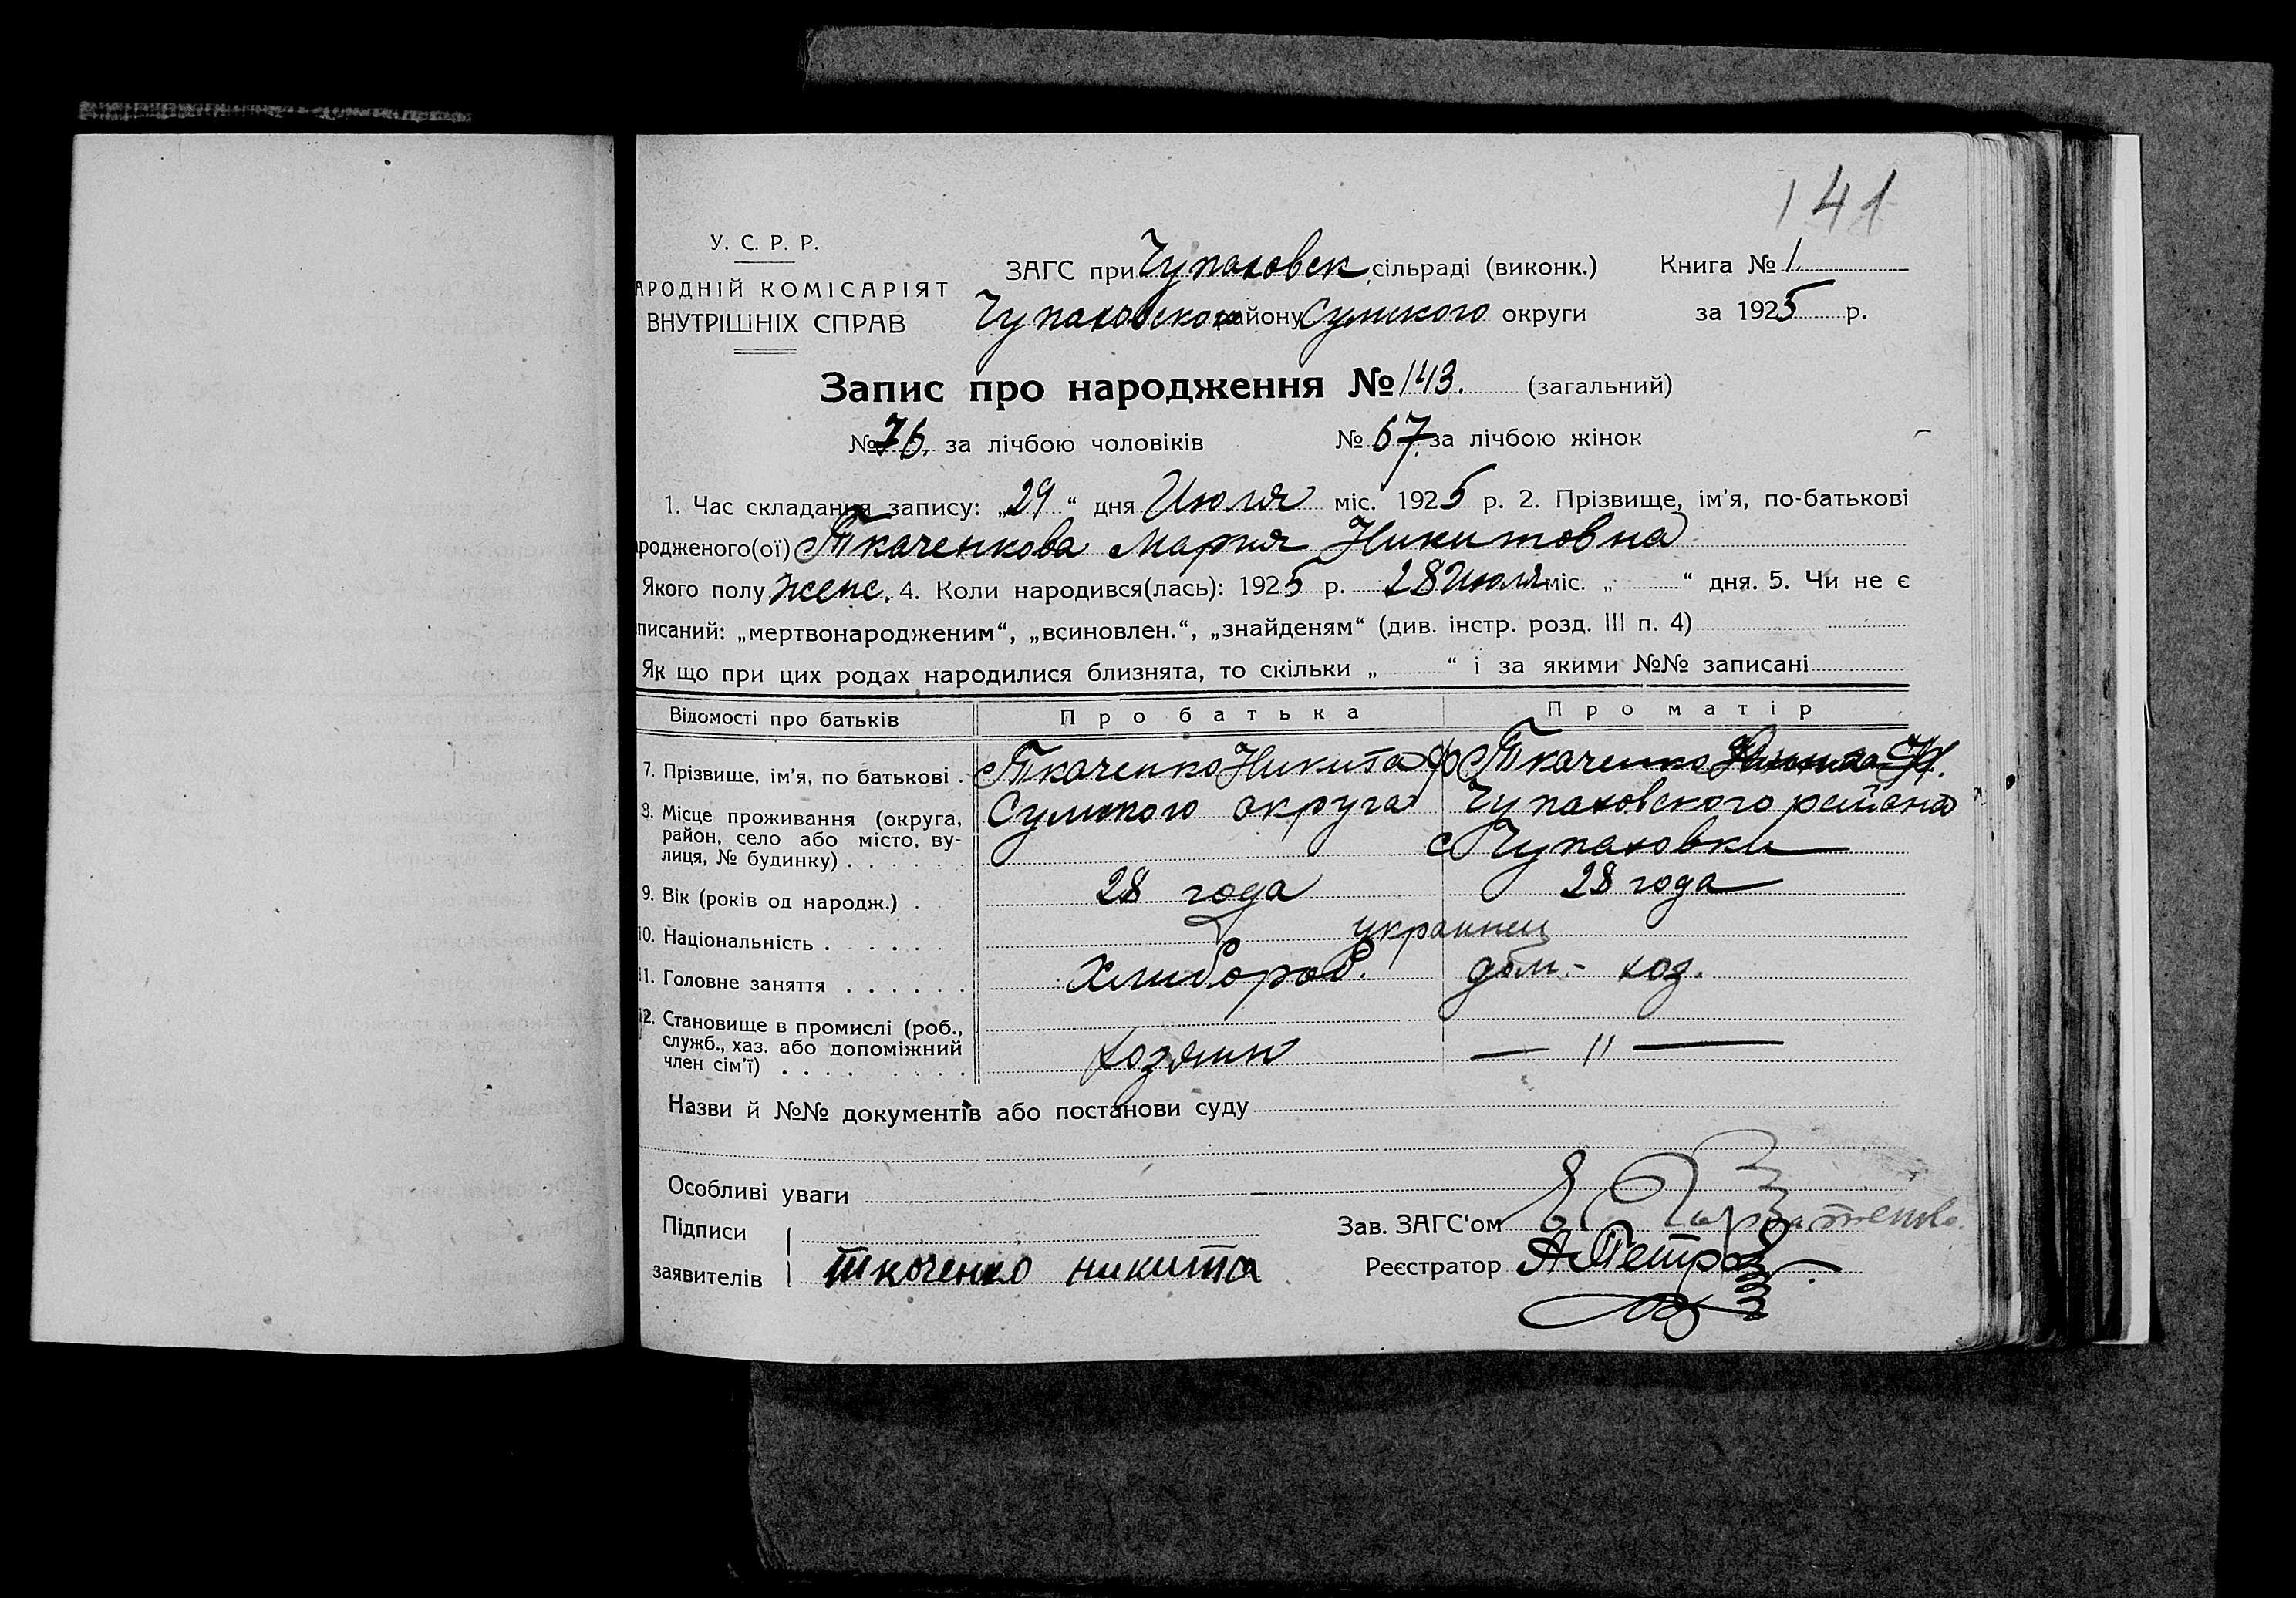 141
У. С. Р. Р.
АРОДНІЙ КОМІСАРІЯТ
ВНУТРІШНІХ СПРАВ
ЗАГС при Чупаховск сільраді (виконк.) Книга № 1.
Чупаховского району Сумского округи за 1925 р.
Запис про народження № 143. (загальний)
№ 76, за лічбою чоловіків № 67. за лічбою жінок
1. Час складання запису: „29“ дня Июля міс. 1925 р. 2. Прізвище, ім'я, по-батькові
родженого(ої) Ткаченкова Мария Никитовна
Якого полу женс. 4. Коли народився(лась): 1925 р. 28 Июля міс. „ “ дня. 5. Чи не є
писаний: „мертвонародженим“, „всиновлен.“, „знайденям“ (див. інстр. розд. III п. 4)
Як що при цих родах народилися близнята, то скільки „ “ і за якими №№ записані
Відомості про батьків Про батька Про матір
7. Прізвище, ім'я, по батькові . Ткаченко Никита Ф Ткаченко
8. Місце проживання (округа, район, село або місто, вулиця, № будинку) . . . . . Сумского округа Чупаховского района
с Чупаховки
9. Вік (років од народж.) . 28 года 28 года
10. Національність . . . . . . украинец
11. Головне заняття . . . . . . Хлибороб. дом - хоз.
12. Становище в промислі (роб., служб., хаз. або допоміжний член сім'ї) . . . . . . . . . хозяин — " —
Назви й №№ документів або постанови суду
Особливі уваги
Підписи
заявителів Ткаченко никита
Зав. ЗАГС'ом
Реєстратор А Петро